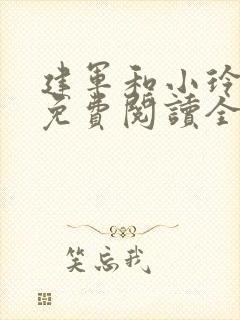 建军和小玲
免費閱讀全
笑忘我